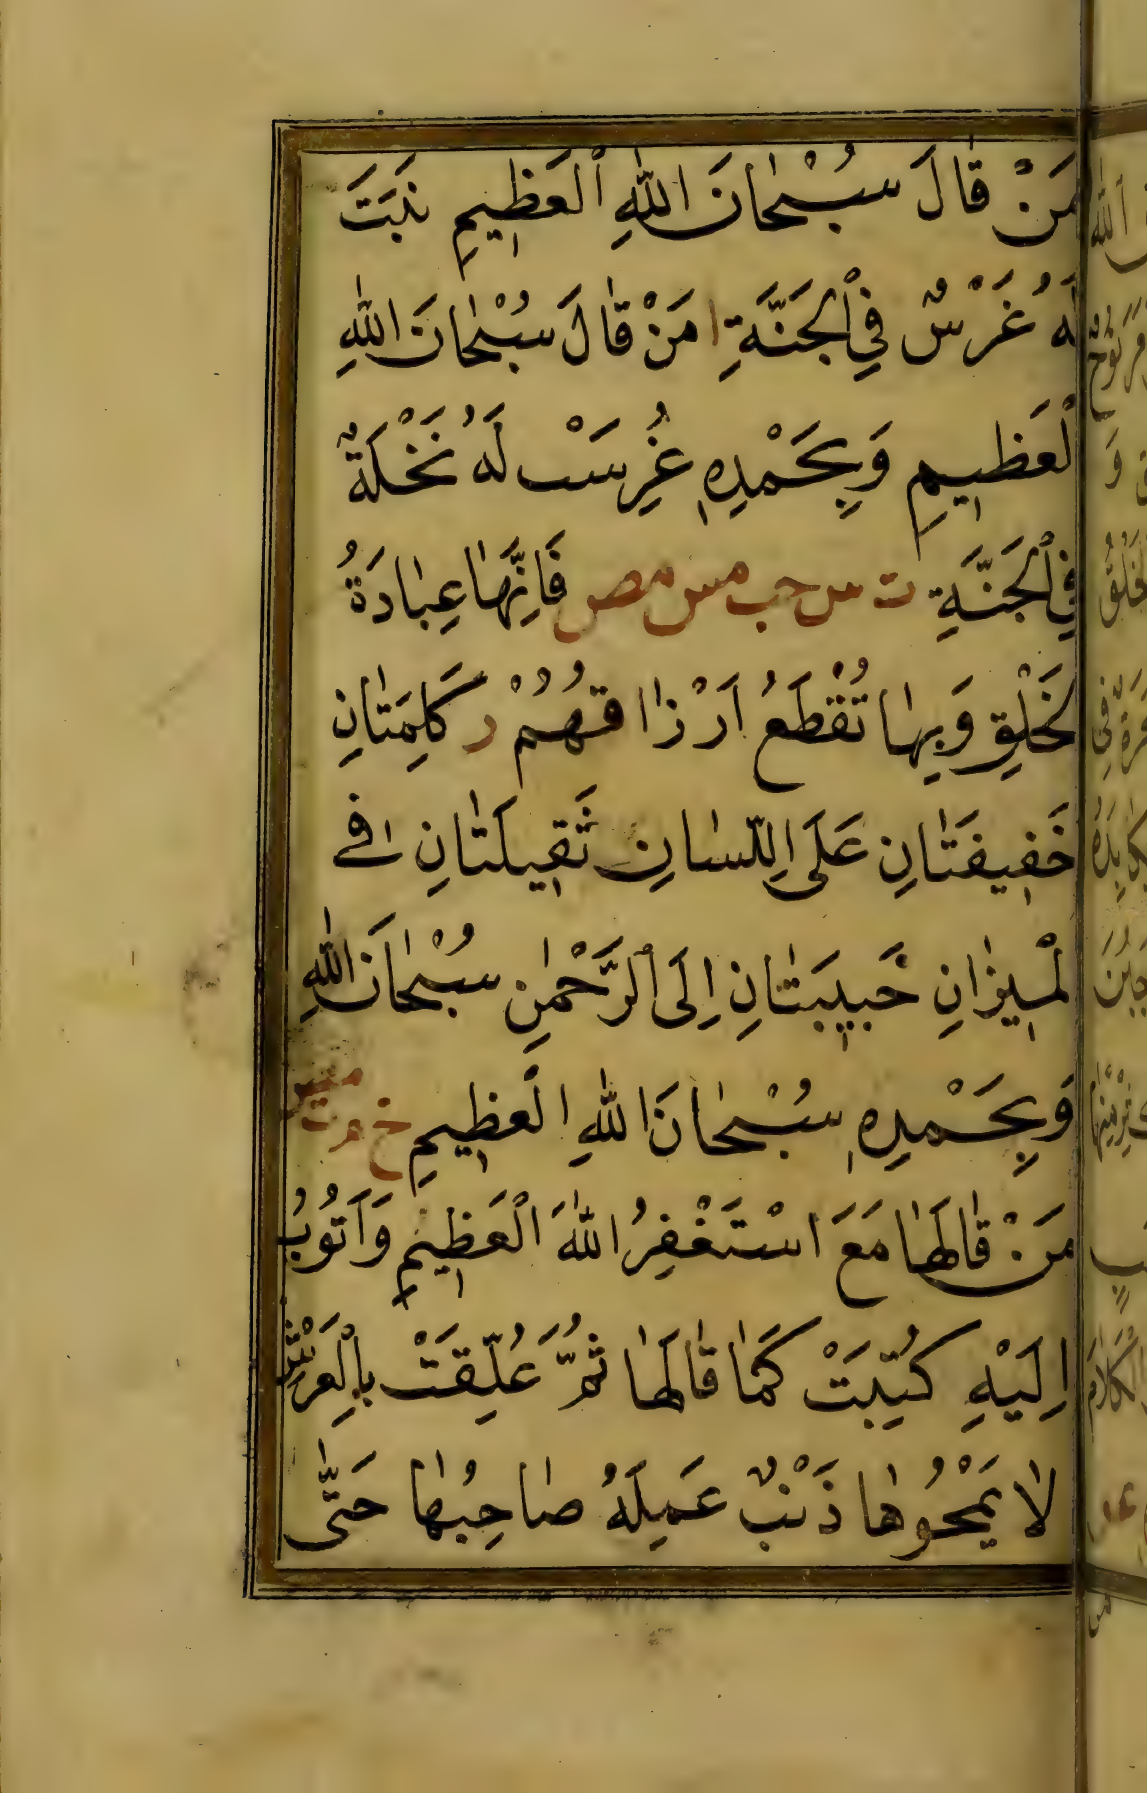 مَنْ قَالَ سُبْحَانَ اللّٰهِ الْعَظِيمِ نَبَتَ
لَهُ غَرْسٌ فِي الْجَنَّةِ ا مَنْ قَالَ سُبْحَانَ اللّٰهِ
الْعَظِيمِ وَبِحَمْدِهِ غُرِسَتْ لَهُ نَخْلَةٌ
فِي الْجَنَّةِ ت س حب مس مص فَاِنَّهَا عِبَادَةُ
الْخَلْقِ وَبِهَا تُقْطَعُ اَرْزَاقُهُمْ ر كَلِمَتَانِ
خَفِيفَتَانِ عَلَى اللِّسَانِ ثَقِيلَتَانِ فِي
الْمِيزَانِ حَبِيبَتَانِ اِلَى الرَّحْمٰنِ سُبْحَانَ اللّٰهِ
وَبِحَمْدِهِ سُبْحَانَ اللّٰهِ الْعَظِيمِ خ م ت مص
مَنْ قَالَهَا مَعَ اسْتَغْفِرُ اللّٰهَ الْعَظِيمَ وَاَتُوبُ
اِلَيْهِ كُتِبَتْ كَمَا قَالَهَا ثُمَّ عُلِّقَتْ بِالْعَرْشِ
لَا يَمْحُوهَا ذَنْبٌ عَمِلَهُ صَاحِبُهَا حَتَّى